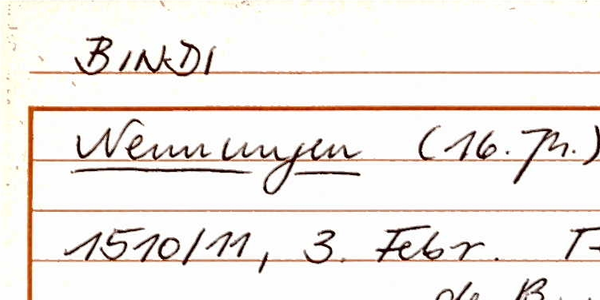 BINDI
Nennungen (16. Jh.)
1510/11, 3. Febr.
de